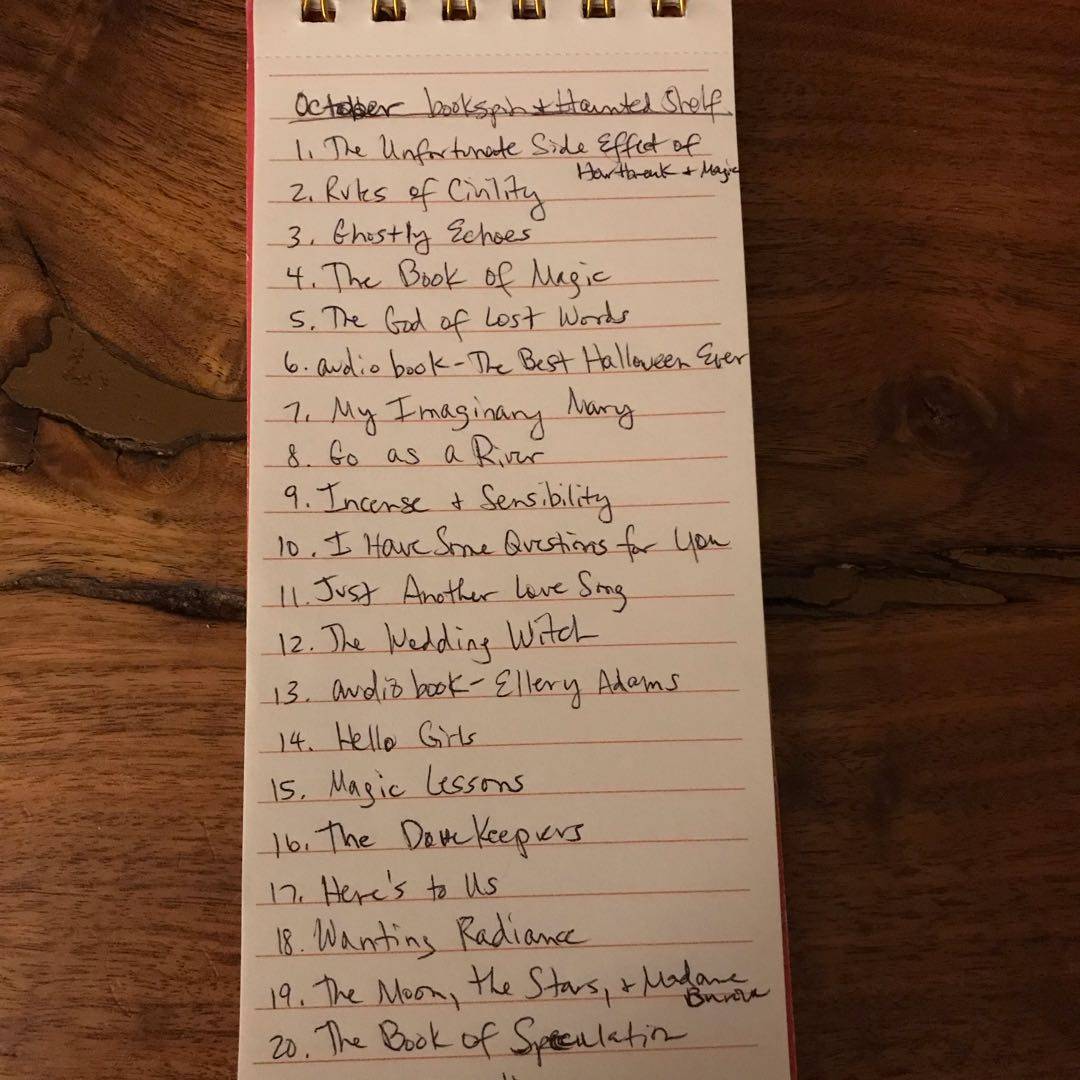 October bookspin + Haunted Shelf
1. The Unfortunate Side Effect of
Heartbreak + Magic
2. Rules of Civility
3. Ghostly Echoes
4. The Book of Magic
5. The God of Lost Words
6. audio book - The Best Halloween Ever
7. My Imaginary Mary
8. Go as a River
9. Incense + Sensibility
10. I Have Some Questions for You
11. Just Another Love Song
12. The Wedding Witch
13. audio book - Ellery Adams
14. Hello Girls
15. Magic Lessons
16. The Dove Keepers
17. Here's to Us
18. Wanting Radiance
19. The Moon, the Stars, + Madame
Burova
20. The Book of Speculation